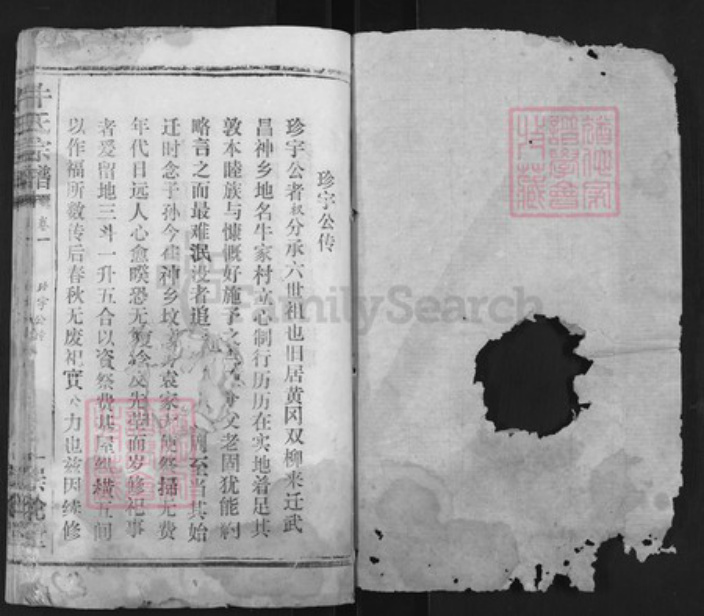 珍宇公传
珍宇公者叔分承六世祖也旧居黄冈双柳来迁武
昌神乡地名牛家村立心制行历历在实地着足其
敦本睦族与慷慨好施予之父老固犹能
略言之而最难泯没者追至当其始
迁时念子孙今在神乡坟袁家便祭扫无费
年代日远人心愈暌恐无复念及先茔而岁修祀事
者爰留地三斗一升五合以资祭费基屋横五间
以作福所数传后春秋无废祀实公力也兹因续修
牛氏宗谱
卷一
珍宇公传
FamilySearch